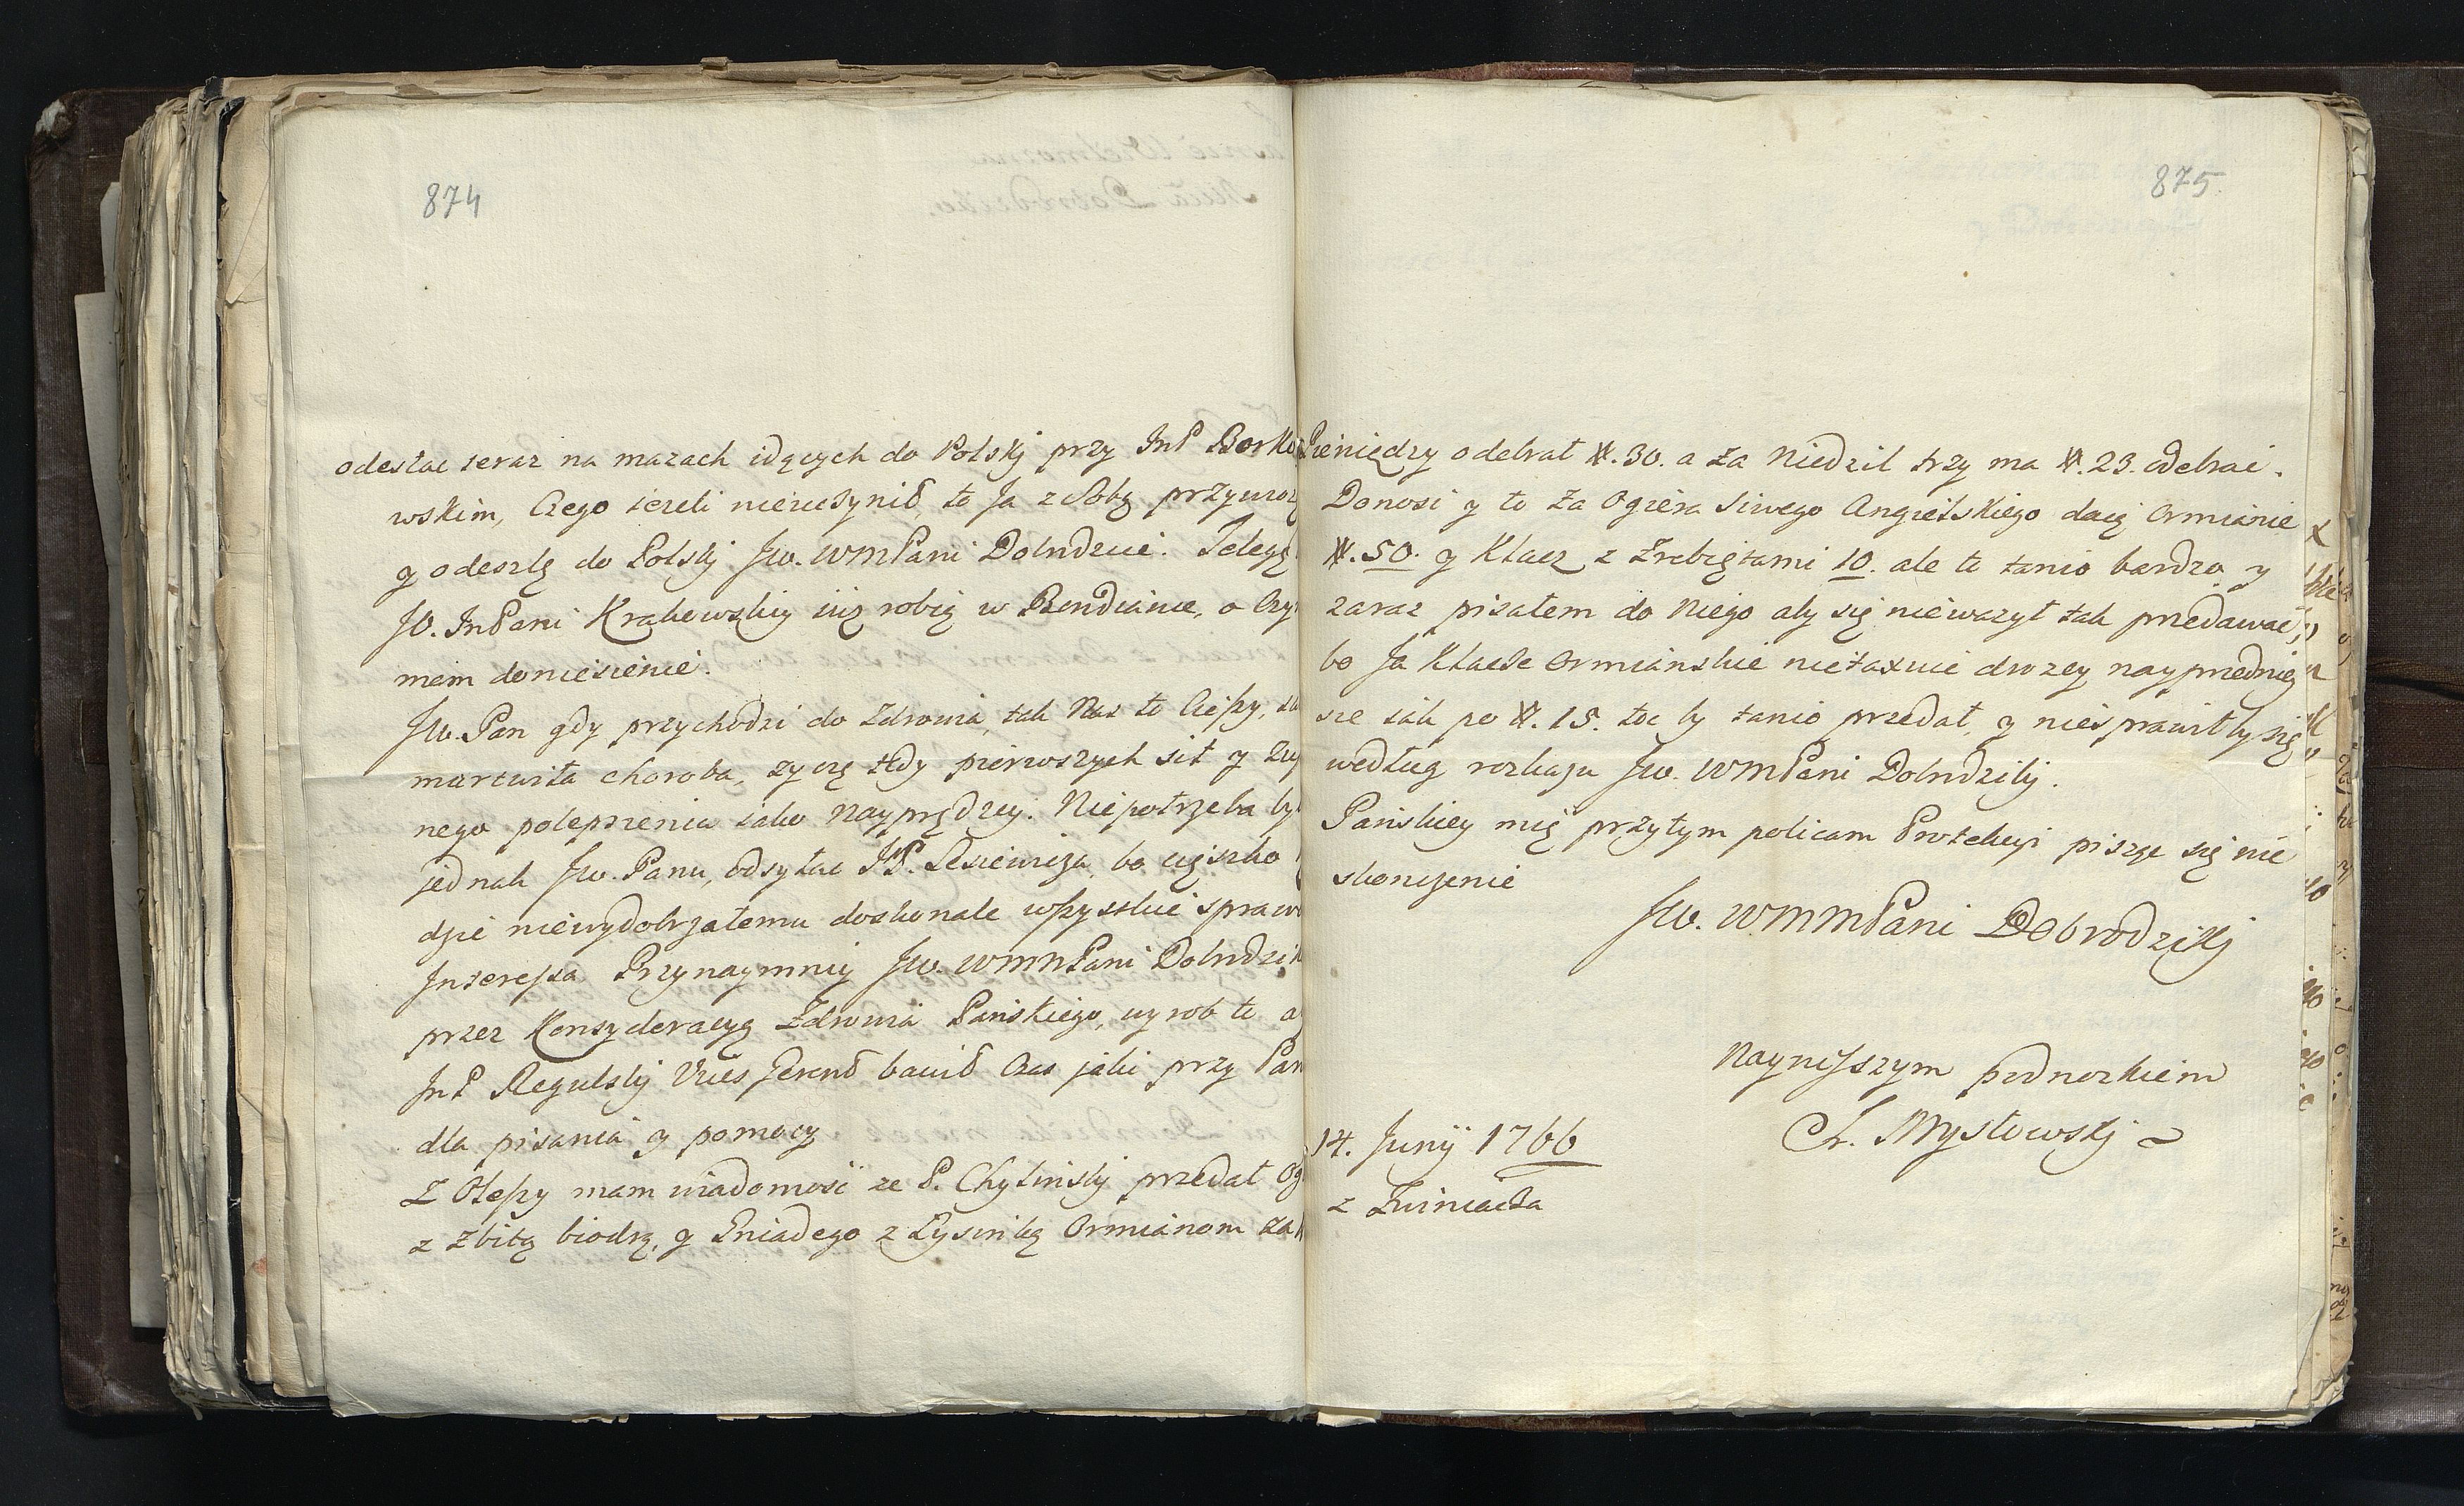 874
odesłac teraz na mazach idących do Polskj przy JmP Borko
wskim, Czego iezeli nieuczynił, to Ja z Sobą przywioz
y odeszlę do Polskj Jw. WMPani Dobrodzice. Telegę
JO. JmPani Krakowskiy iuz robią w Bendianie, o Czy
mem doniesienie.
Jw. Pan gdy przychodzi do Zdrowia, tak Nas to Cieszy,
martwiła choroba, zyczę tedy pierwszych sił y Zup
nego polepszenia iako Nayprędzey. Niepotrzeba by
jednak Jw. Panu, odsyłac JP. Lesiewicza, bo cięszko
dzie niewydobrzałemu doskonale wszystkie spraw
Jnteressa Przynaymniy Jw. WMMPani Dobrodzik
przez Konsyderacyą Zdrowia Pańskiego, wyrob to a
JmP Regulskj Vices Gerend bawił Czas jaki przy Pan
dla pisania y pomocy
Z Oleszy mam wiadomosć ze P. Chylinskj przedał Og
z Zbitą biodrą, y Gniadego z Łysinką Ormianom za
875
Pieniędzy odebrał #.30. a za Niedzil trzy ma #.23. odebrać.
Donosi y to Za Ogiera Siwego Angielskiego daią Ormianie
#.50. y Klacz z Zrebiętami 10. ale to tanio bardzo y
zaraz pisałem do Niego aby się nieważył tak przedawać,
bo Ja Klacze Ormianskie nietaxuie drozey nayprzedniey
sze iak po #.15. toc by tanio przedał, y niesprawił by się
według rozkazu Jw. WMPani Dobrodzikj.
Pańskiey mię przytym policam Protekcyi pisząc się nie
skonczenie
Jw. WMMPani Dobrodzikj
Nayniszszym podnozkiem
Ch. Mysłowskj
14. Junij 1766
z Zwiniacza